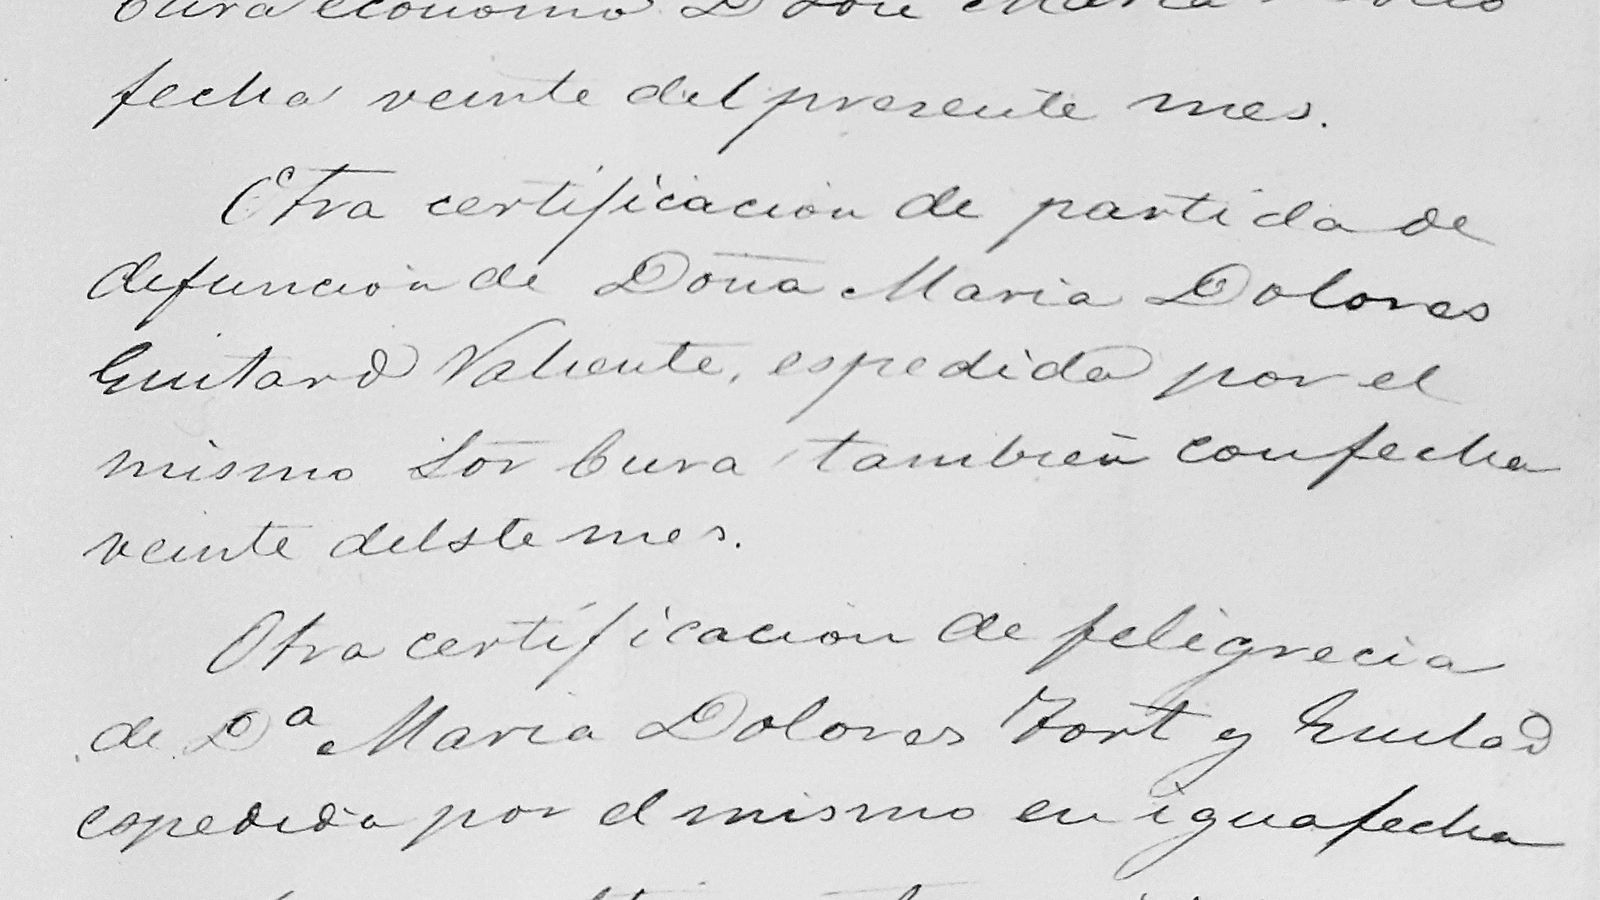 Cura economo D José Maria
fecha veinte del presente mes.
Otra certificacion de partida de
defuncion de Doña Maria Dolores
Guitard Valiente, espedida por el
mismo Sor Cura tambien con fecha
veinte deleste mes.
Otra certificacion de feligrecia
de Dª Maria Dolores Fort y Guitad
espedida por el mismo en igua fecha